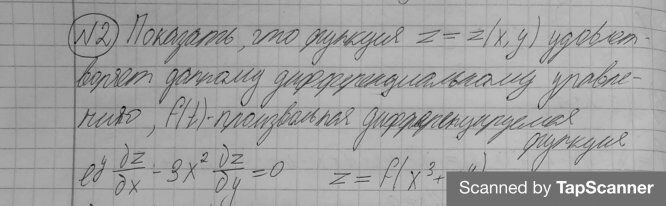 N2 Показать, что функция z = z(x, y) удовлет-
воряет данному дифференциальному уравне-
нию, f(t)-произвольная дифференцируемая
функция
e^y ∂z/∂x - 3x² ∂z/∂y = 0 z = f(x³ +
Scanned by TapScanner